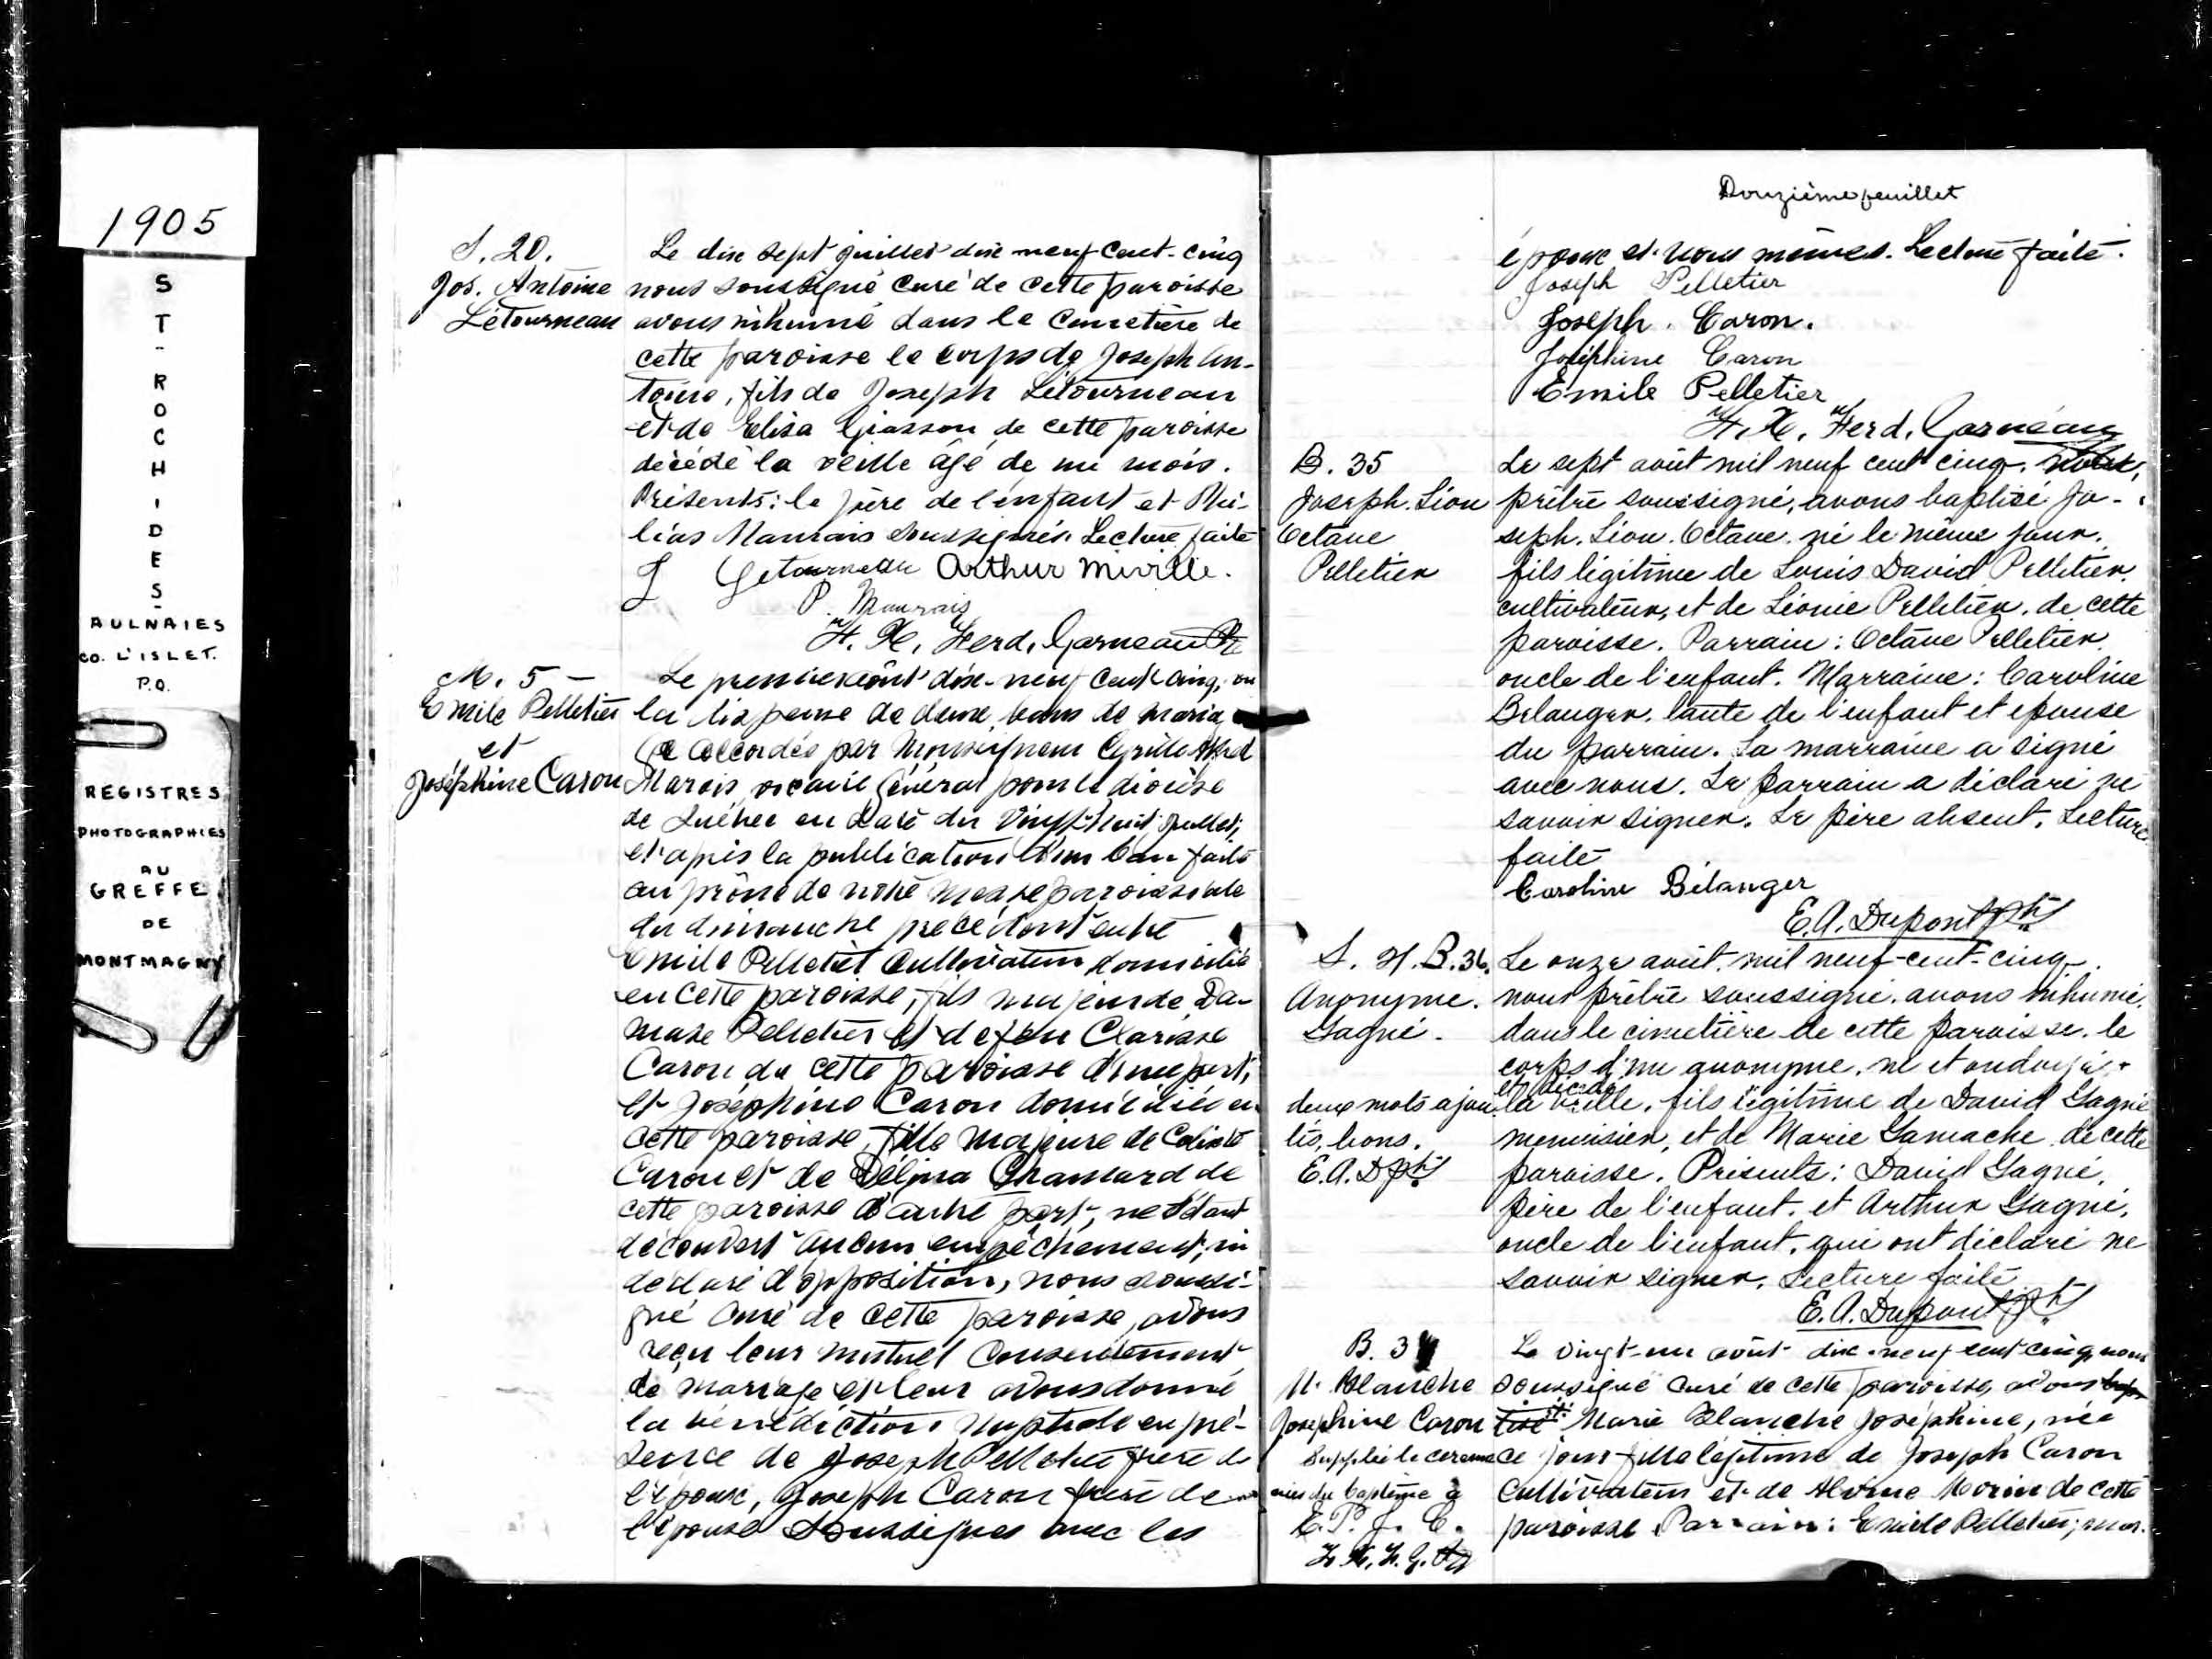 1905
ST-ROCH-DES-
AULNAIES
CO. L'ISLET.
P.Q.
REGISTRES
PHOTOGRAPHIES
AU
GREFFE
DE
MONTMAGNY
S. 20.
Jos. Antoine
Létourneau
Le dix sept juillet dix-neuf cent-cinq
nous soussigné curé de cette paroisse
avons inhumé dans le cimetière de
cette paroisse le corps de Joseph An-
toine, fils de Joseph Létourneau
et de Elisa Giasson de cette paroisse
décédé la veille âgé de un mois.
Présents: le père de l'enfant et
soussignés. Lecture faite
J Letourneau Arthur Miville.
P. Maurais
H. X. Ferd. Garneau Ptr
M. 5 -
Emile Pelletier
et
Joséphine Caron
Le premier août dix-neuf cent cinq, vu
la dispense de deux bans de maria
ge accordée par Monseigneur Cyrille Alfred
Marois vicaire Général pour le diocèse
de Québec en date du vingt-huit juillet,
et après la publication d'un ban faite
au prône de notre messe paroissiale
du dimanche précédent entre
Emile Pelletier cultivateur domicilié
en cette paroisse, fils majeur de Da-
mase Pelletier et de feu Clarisse
Caron de cette paroisse d'une part,
et Joséphine Caron domiciliée en
cette paroisse, fille majeure de
Caron et de Délima Chamard de
cette paroisse d'autre part, ne s'étant
découvert aucun empêchement, ni
déclaré d'opposition, nous soussi-
gné curé de cette paroisse, avons
reçu leur mutuel consentement
de mariage et leur avons donné
la bénédiction nuptiale en pré-
sence de Joseph Pelletier frère de
l'époux, Joseph Caron frère de
l'épouse soussignés avec les
Douzième feuillet
époux et nous mêmes. Lecture faite.
Joseph Pelletier
Joseph. Caron.
Joséphine Caron
Emile Pelletier
H. X. Ferd. Garneau
B. 35
Joseph. Léon
Octave
Pelletier
Le sept août mil neuf cent cinq. nous,
prêtre soussigné, avons baptisé Jo-
seph. Léon. Octave. né le même jour.
fils légitime de Louis David Pelletier.
cultivateur, et de Léonie Pelletier. de cette
paroisse. Parrain: Octave Pelletier.
oncle de l'enfant. Marraine: Caroline
Belanger. tante de l'enfant et épouse
du parrain. La marraine a signé
avec nous. Le parrain a déclaré ne
savoir signer. Le père absent. Lecture
faite
Caroline Bélanger
E. A. Dupont Ptr
S. H. B. 36.
Anonyme.
Gagné.
deux mots ajou
tés, bons.
E. A. D Ptr
Le onze août. mil neuf-cent-cinq.
nous prêtre soussigné. avons inhumé.
dans le cimetière de cette paroisse. le
corps d'un anonyme. né et ondoyé
et décédé
la veille. fils légitime de David Gagné
menuisier, et de Marie Gamache de cette
paroisse. Présents: David Gagné.
père de l'enfant. et Arthur Gagné.
oncle de l'enfant. qui ont déclaré ne
savoir signer. Lecture faite
E. A. Dupont Ptr
B. 37
M. Blanche
Josephine Caron
Suppléé les cérémo
nies du baptême à
E. P. J. C.
H. X. F. G. Ptr
Le vingt-un août dix-neuf cent cinq nous
soussigné curé de cette paroisse avons bap
tisé Marie Blanche Joséphine, née
ce jour fille légitime de Joseph Caron
cultivateur et de Alvine Morin de cette
paroisse. Parrain: Emile Pelletier; mar-